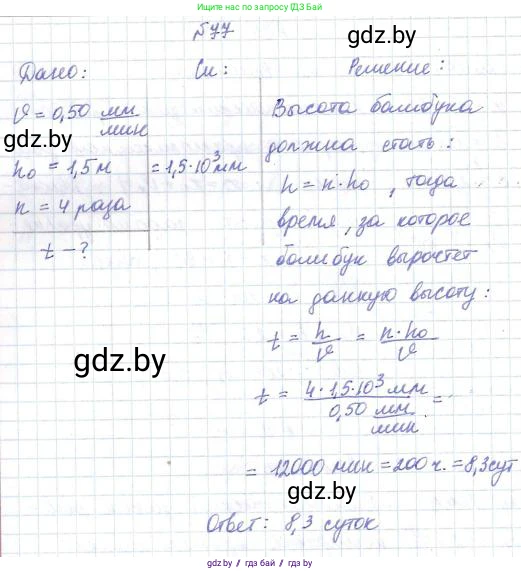 Ищите нас в интернете: Решай Бай
№77
gdz.by
Дано: Си: Решение:
v = 0,50 мм/мин
gdz.by
h₀ = 1,5 м = 1,5·10³ мм
n = 4 раза
t – ?
Высота бамбука
должна стать:
h = n·h₀, тогда
время, за которое
бамбук вырастет
на данную высоту:
t = h/v = n·h₀/v
gdz.by
t = 4·1,5·10³ мм / 0,50 мм/мин =
= 12000 мин = 200 ч. = 8,3 сут
gdz.by
Ответ: 8,3 суток
gdz.by / гдз бай / gdz.by / гдз бай / gdz.by